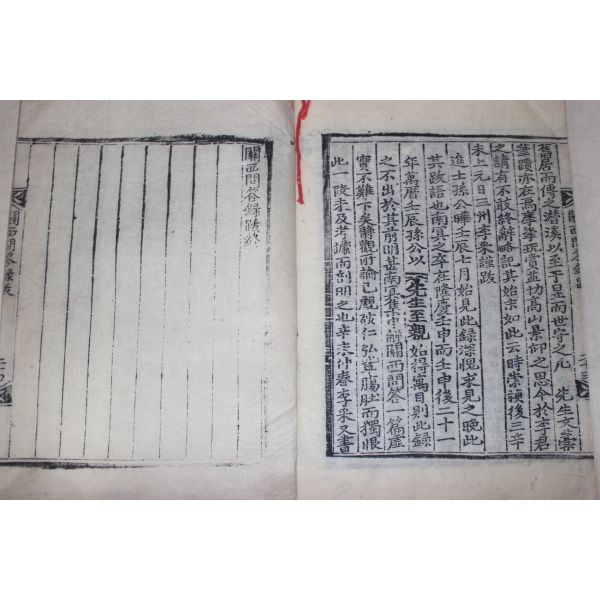 舊居而傳之潛溪以至于是而世守之凡 先生文藁
筆蹟亦在焉摩挲玩賞益切高山景仰之思今於李君
之請有不敢終辭略記其始末如此云時崇禎後三辛
未上元日三州李采謹跋
進士孫公曄壬辰七月始見此錄深愧求見之晩此
其跋語也南冥之卒在隆慶壬申而壬申後二十一
年萬曆壬辰孫公以 先生至親始得寓目則此錄
之不出於其前明甚南冥集中解關西問答一篇虛
實不難下矣静觀所論己覷破仁弘輩膓肚而獨恨
此一段未及考據而剖明之也辛未仲春李采又書
關西問答錄跋
關西問答錄跋終
關西問答錄跋